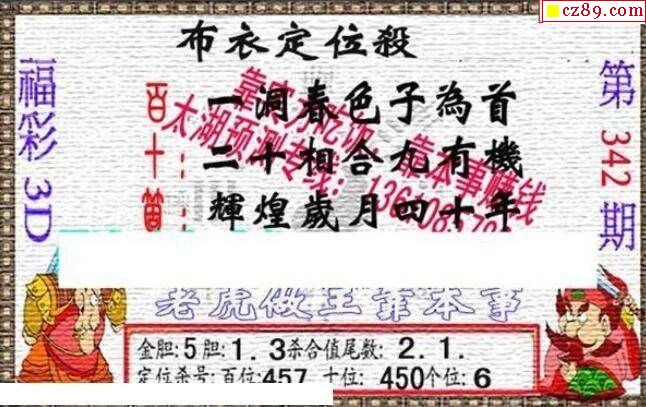 cz89.com
布衣定位殺
福彩3D
第342期
百
十
一洞春色子為首
二十相合九有機
輝煌歲月四十年
靠实力吃饭 靠本事赚钱
太湖预测专线:
老虎做王靠本事
金胆:5胆:1.3杀合值尾数:2.1.
定位杀号:百位:457 十位:450个位:6